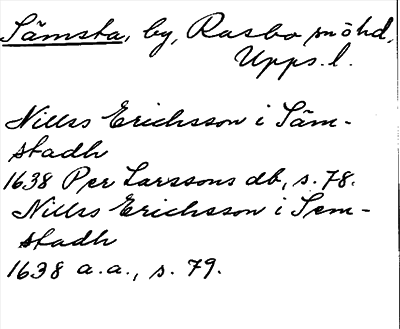 Sämsta, by, Rasbo snöhd,
Upps. l.
Nillss Erichsson i Säm-
stadh
1638 Per Larssons db, s. 78.
Nillss Erichsson i Sem-
stadh
1638 a.a., s. 79.